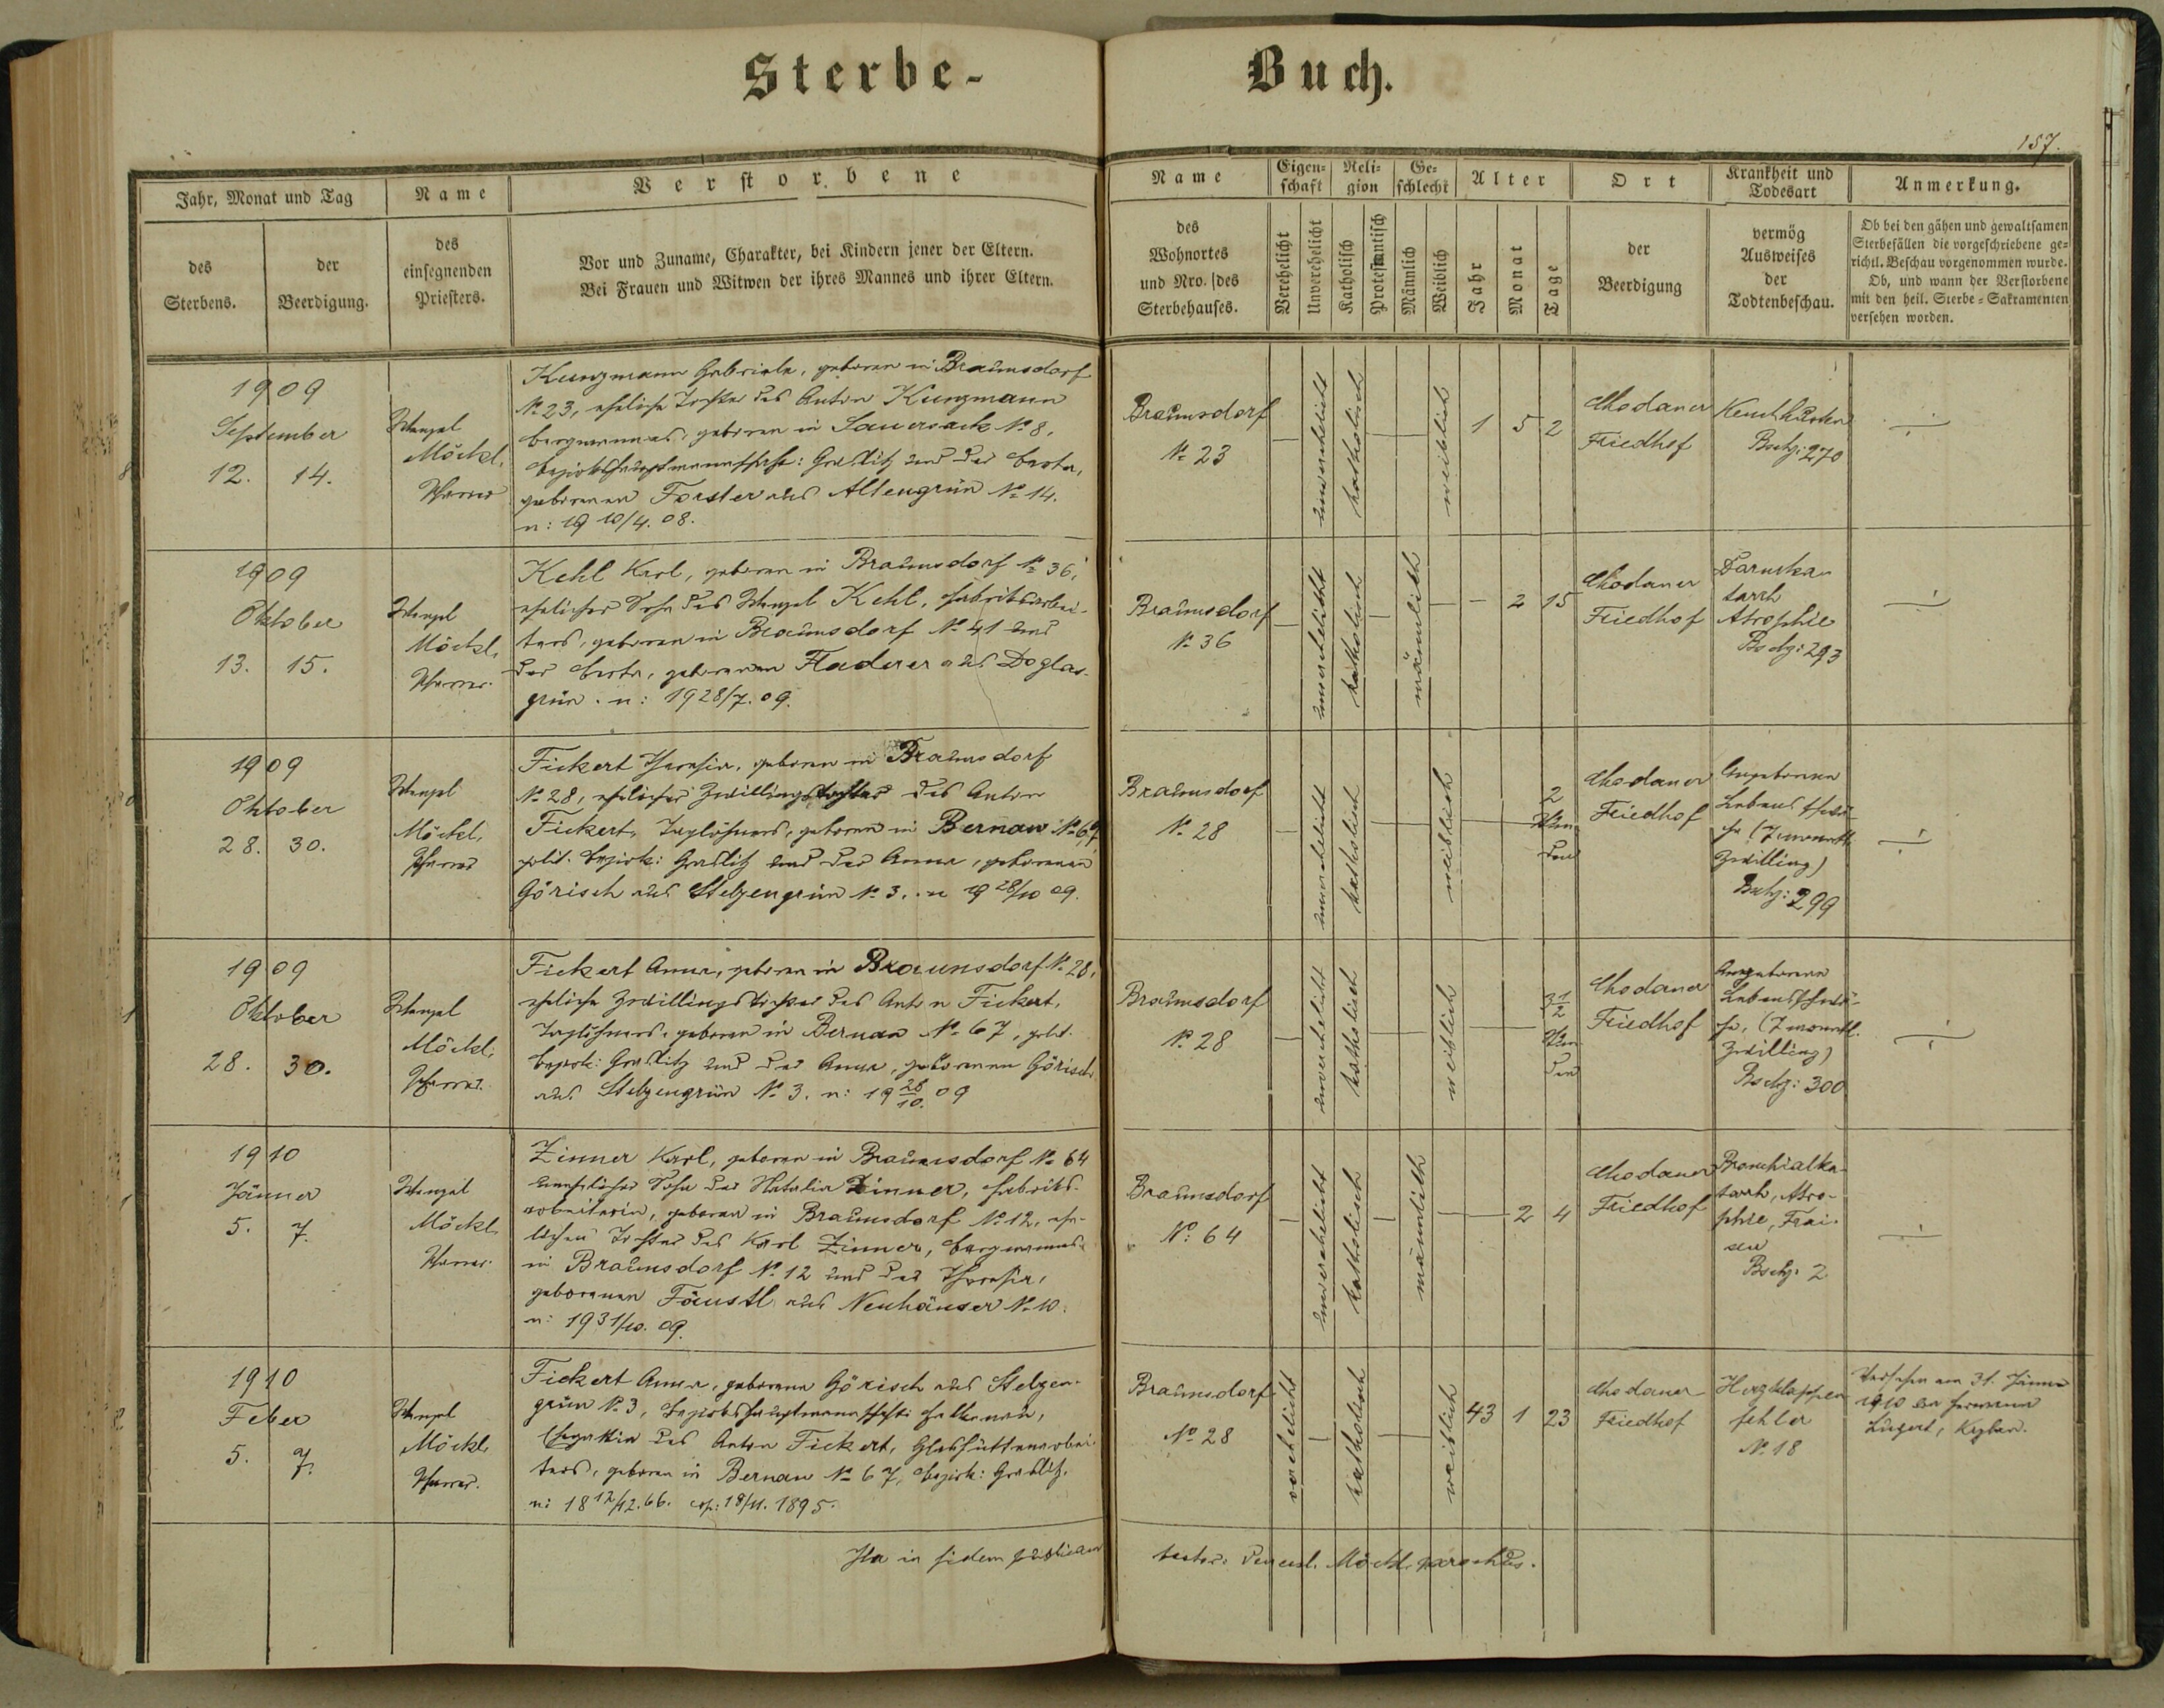 Sterbe-
Buch.
157.
Jahr, Monat und Tag
des
Sterbens.
der
Beerdigung.
Name
des
einsegnenden
Priesters.
Verstorbene
Vor und Zuname, Charakter, bei Kindern jener der Eltern.
Bei Frauen und Witwen der ihres Mannes und ihrer Eltern.
Name
des
Wohnortes
und Nro. des
Sterbehauses.
Eigen-
schaft
Verehelicht
Unverehelicht
Reli-
gion
Katholisch
Protestantisch
Ge-
schlecht
Männlich
Weiblich
Alter
Jahr
Monat
Tage
Ort
der
Beerdigung
Krankheit und
Todesart
vermög
Ausweises
der
Todtenbeschau.
Anmerkung.
Ob bei den gähen und gewaltsamen
Sterbefällen die vorgeschriebene ge-
richtl. Beschau vorgenommen wurde.
Ob, und wann der Verstorbene
mit den heil. Sterbe-Sakramenten
versehen worden.
1909
September
12. 14.
Wenzel
Möckl,
Pfarrer
Kungmann Gabriele, geboren in Braunsdorf
No 23, eheliche Tochter des Anton Kungmann
Bergmannes, geboren in Sauersack No 8,
Bezirkshauptmannschaft: Graslitz und der Berta,
geborenen Forster aus Altengrün No 14.
n: 19 10/4. 08.
Braunsdorf
No 23
unverehelicht
katholisch
weiblich
1 5 2
Chodauer
Friedhof
Keuchhusten
Bschz: 270
1909
Oktober
13. 15.
Wenzel
Möckl,
Pfarrer.
Kehl Karl, geboren in Braunsdorf No 36,
ehelicher Sohn des Wenzel Kehl, Fabriksarbei-
ters, geboren in Braunsdorf No 41 und
der Berta, geborenen Fladerer aus Doglas-
grün. n: 19 28/7. 09.
Braunsdorf
No 36
unverehelicht
katholisch
männlich
- 2 15
Chodauer
Friedhof
Darmka-
tarrh
Atrophie
Bschz: 293
1909
Oktober
28. 30.
Wenzel
Möckl,
Pfarrer
Fickert Theresia, geboren in Braunsdorf
No 28, eheliche Zwillingstochter des Anton
Fickert, Taglöhners, geboren in Bernau No 67,
polit. Bezirk: Graslitz und der Anna, geborenen
Görisch aus Stelzengrün No 3. n 19 28/10 09.
Braunsdorf
No 28
unverehelicht
katholisch
weiblich
2
Stun
den
Chodauer
Friedhof
Angeborene
Lebensschwä-
che (7 monatl.
Zwilling)
Bschz: 299
1909
Oktober
28. 30.
Wenzel
Möckl,
Pfarrer.
Fickert Anna, geboren in Braunsdorf No 28,
eheliche Zwillingstochter des Anton Fickert,
Taglöhners, geboren in Bernau No 67, polit.
Bezirk: Graslitz und der Anna, geborenen Görisch
aus Stelzengrün No 3. n: 19 28/10. 09
Braunsdorf
No 28
unverehelicht
katholisch
weiblich
3 1/2
Stun
den
Chodauer
Friedhof
Angeborene
Lebensschwä-
che, (7 monatl.
Zwilling)
Bschz: 300
1910
Jänner
5. 7.
Wenzel
Möckl,
Pfarrer.
Zinner Karl, geboren in Braunsdorf No 64
unehelicher Sohn der Natalia Zinner, Fabriks-
arbeiterin, geboren in Braunsdorf No 12, ehe-
lichen Tochter des Karl Zinner, Bergmannes
in Braunsdorf No 12 und der Theresia,
geborenen Fäustl aus Neuhäuser No 10.
n: 19 31/10. 09.
Braunsdorf
No: 64
unverehelicht
katholisch
männlich
2 4
Chodauer
Friedhof
Bronchialka-
tarrh, Atro-
phie, Frai-
sen
Bschz: 2
1910
Feber
5. 7.
Wenzel
Möckl,
Pfarrer.
Fickert Anna, geborene Görisch aus Stelzen-
grün No 3, Bezirkshauptmannschaft: Falkenau,
Gattin des Anton Fickert, Glashüttenarbei-
ters, geboren in Bernau No 67, Bezirk: Graslitz,
n: 18 12/12. 66. cop: 18/11. 1895.
Braunsdorf
No 28
verehelicht
katholisch
weiblich
43 1 23
Chodauer
Friedhof
Herzklappen
fehler
No. 18
Versehen am 31. Jänner
1910 von Hermann
Lugert, Kaplan.
Ita in fidem publicam
testor: Vencesl. Möckl, parochus.